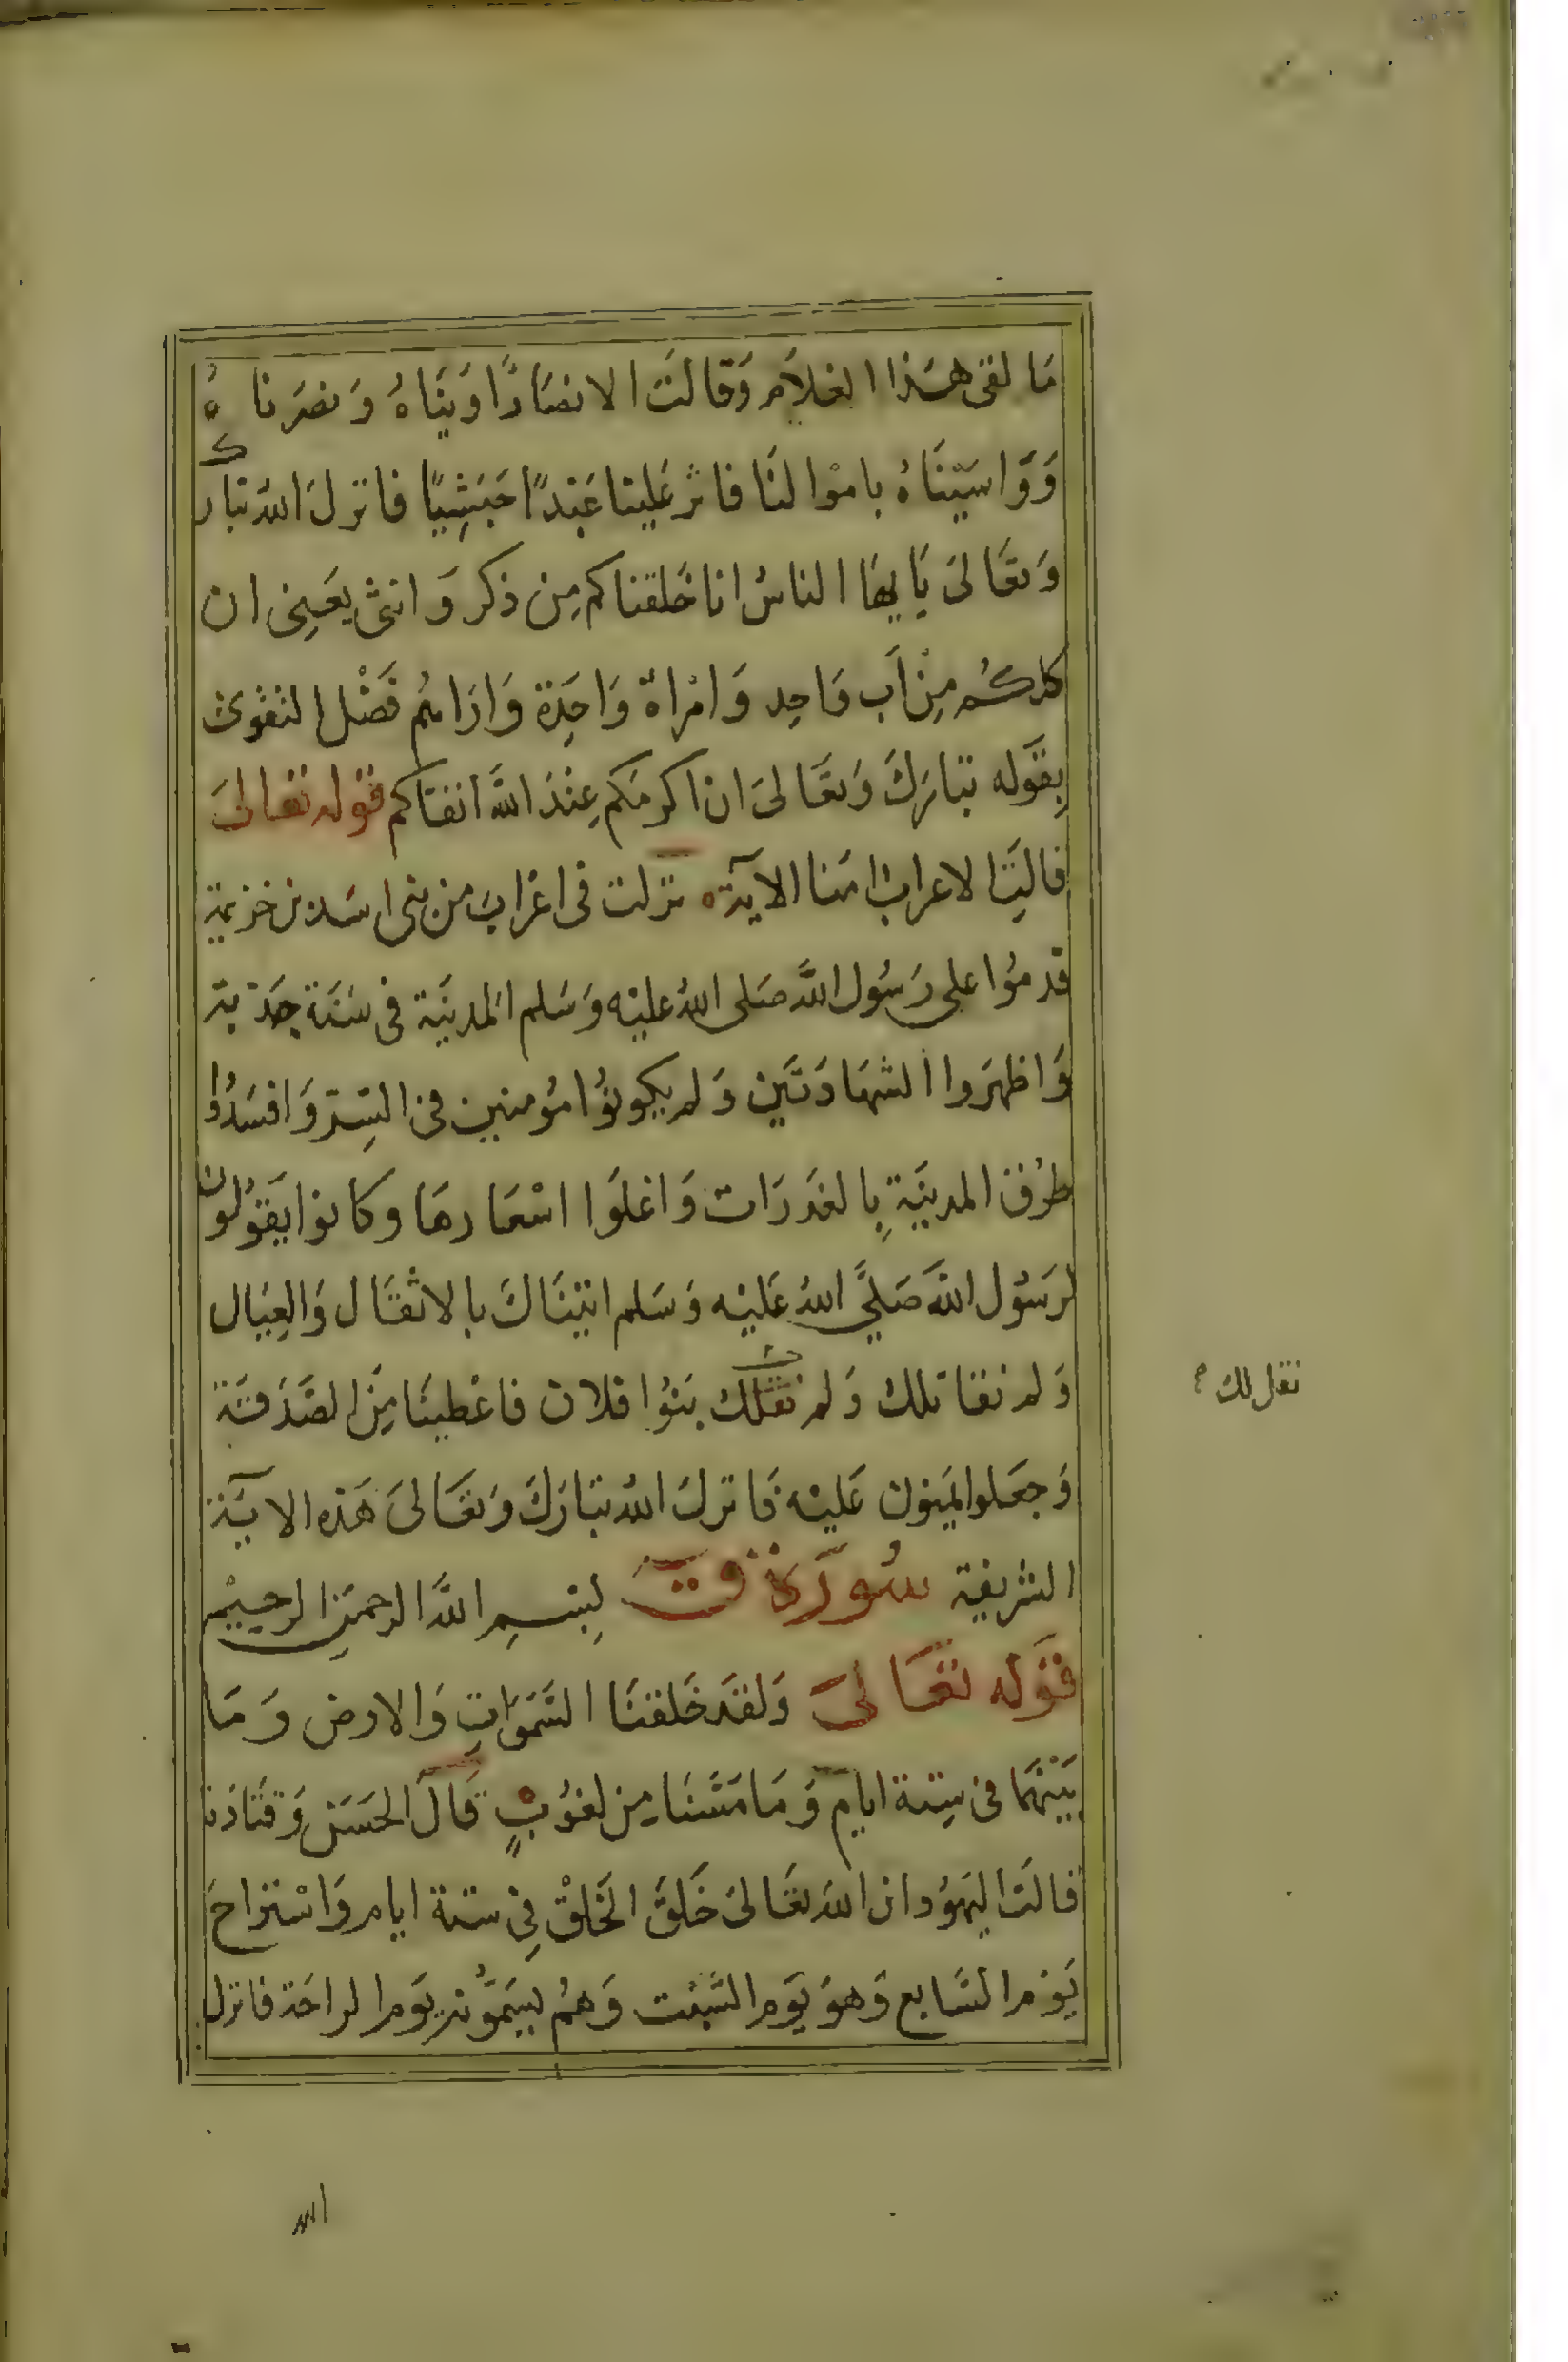 مَا لقى هَذا الغلاَم وَقالتَ الانصَارًا وَينَاهُ وَ نصَرنا هُ
وَوَاسَيْنَاهُ باموْالنَا فاثر عَلينا عَبْدًا حَبَشِيًا فانزلَ اللهُ تبارك
وَتعَالىَ يَا ايهَا الناسُ انا خَلقناكم مِن ذكر وَ انثى يَعَنِى ان
كلكُم مِنْ اَب وَاحِد وَ امْراة وَاحِدَة وَارَاهُم فَضْل التقوىَ
بِقَوله تبَارَكَ وَتعَالىَ ان اكرمَكم عِنْدَ اللهَ اتقاكم قوله تعالىَ
قالتَِ الاعراب امَنا الآية نزلت فى اعْرَابَ من بنى اسَد بن خزيمة
قدمُوا على رَسُول اللهَ صَلى اللهُ عليْه وَسَلم المَدينَة فى سَنَة جَدبة
وَاظهَروا الشهَادَتَين وَلم يكونوُا مُؤمنين فى السِر وَافسَدُوا
طرُق المدينَةِ بِالغدَرَات وَاغلَوا اسْعَارهَا وكانوا يَقوُلون
لرَسُول اللهَ صَلىَ اللهُ عَليْه وَسَلم اتيْنَاكَ بالاثقَال وَالعِيَال
وَلم نقاتلك وَلم نقتلك بَنوُا فلان فاعْطينَا مِنَ الصَّدَقَة
وَجعَلوا يَمنون عَليْه فَانزلَ اللهُ تبَارَكَ وَتعَالىَ هَذه الايَة
نقل لك ع
الشريفة سُورَة قَ بِسْمِ اللهَ الرحمَنِ الرحِيْمِ
قوَله تعَالىَ وَلقدَ خَلقنَا السَّمَوَاتِ وَالارض وَمَا
بَيْنهمَا فى سِتة ايام وَمَا مَسَّنَا مِن لغُوُبٍ قَالَ الحَسَن وَقتَادَة
قالتَ اليَهوُد ان اللهَ تعَالىَ خَلَقَ الخَلْقَ فِى ستة ايام وَاسْتراحَ
يَوْم السَّابع وَهوَ يَوم السَّبْت وَهمُ يسَمَّوُنه يَوم الراحَة فانزل
الله